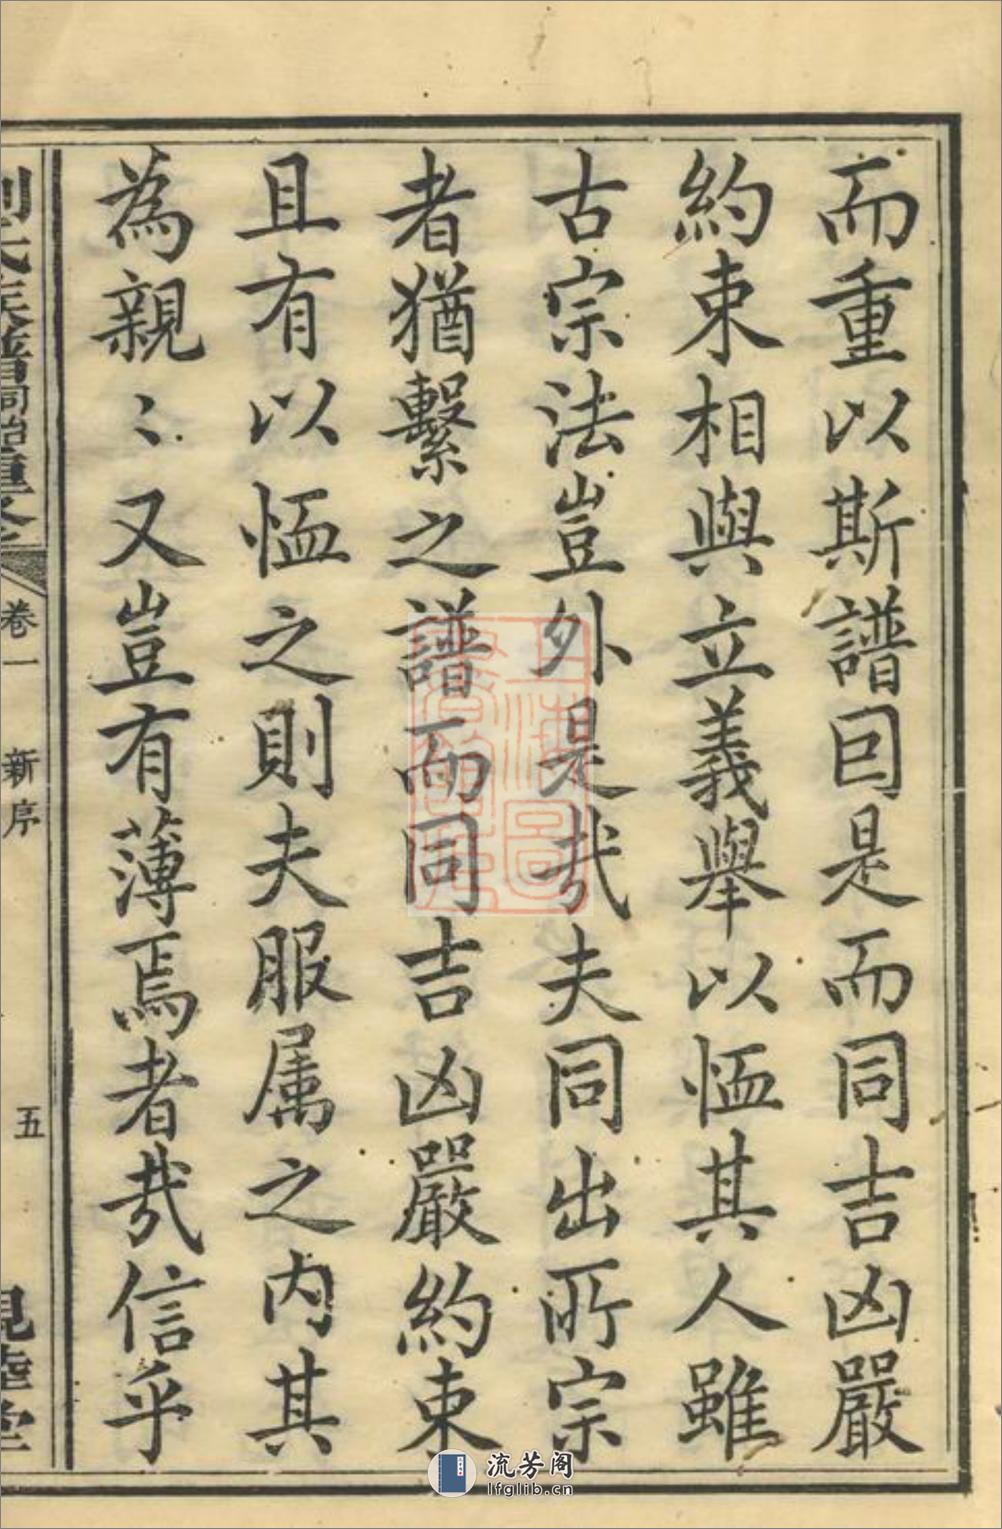 而重以斯譜囙是而同吉凶嚴
約束相與立義舉以恤其人雖
古宗法豈外是哉夫同出所宗
者猶繫之譜而同吉凶嚴約束
且有以恤之則夫服属之內其
為親〻又豈有薄焉者哉信乎
卷一
新序
五
流芳阁
lfglib.cn